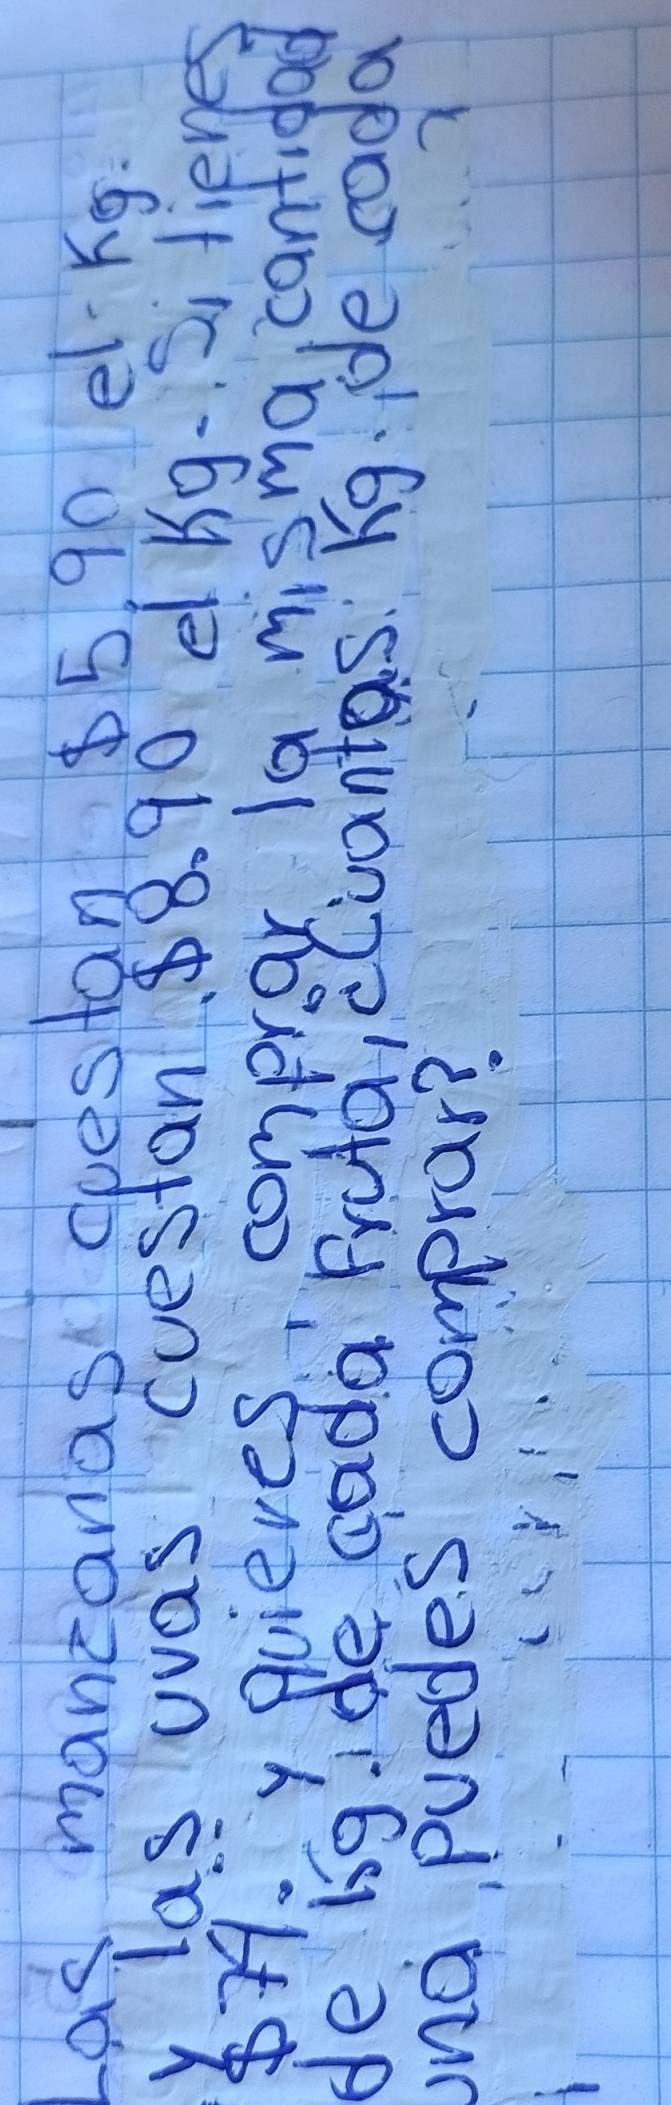 Las manzanas cuestan $5.90 el kg.
y las uvas cuestan $8.90 el kg. Si tienes
$74. y quieres comprar la misma cantidad
de kg. de cada fruta, ¿cuantos kg. de cada
una puedes comprar?